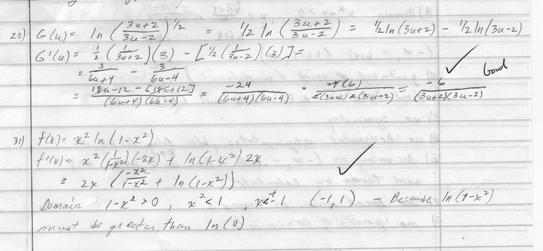 29) G(u) = ln (3u+2 / 3u-2)^1/2 = 1/2 ln (3u+2 / 3u-2) = 1/2 ln(3u+2) - 1/2 ln(3u-2)
G'(u) = 1/2 (1 / 3u+2)(3) - [1/2 (1 / 3u-2)(3)] =
= 3 / 6u+4 - 3 / 6u-4 Good
= 18u-12 - [18u+12] / (6u+4)(6u-4) = -24 / (6u+4)(6u-4) = -6 / (3u+2)(3u-2)
31) f(x) = x² ln(1-x²)
f'(x) = x² (1 / 1-x²)(-2x) + ln(1-x²) 2x
= 2x (-x² / 1-x² + ln(1-x²))
Domain 1-x² > 0, x² < 1, (-1, 1) - Because ln(1-x²)
must be greater than ln(0)